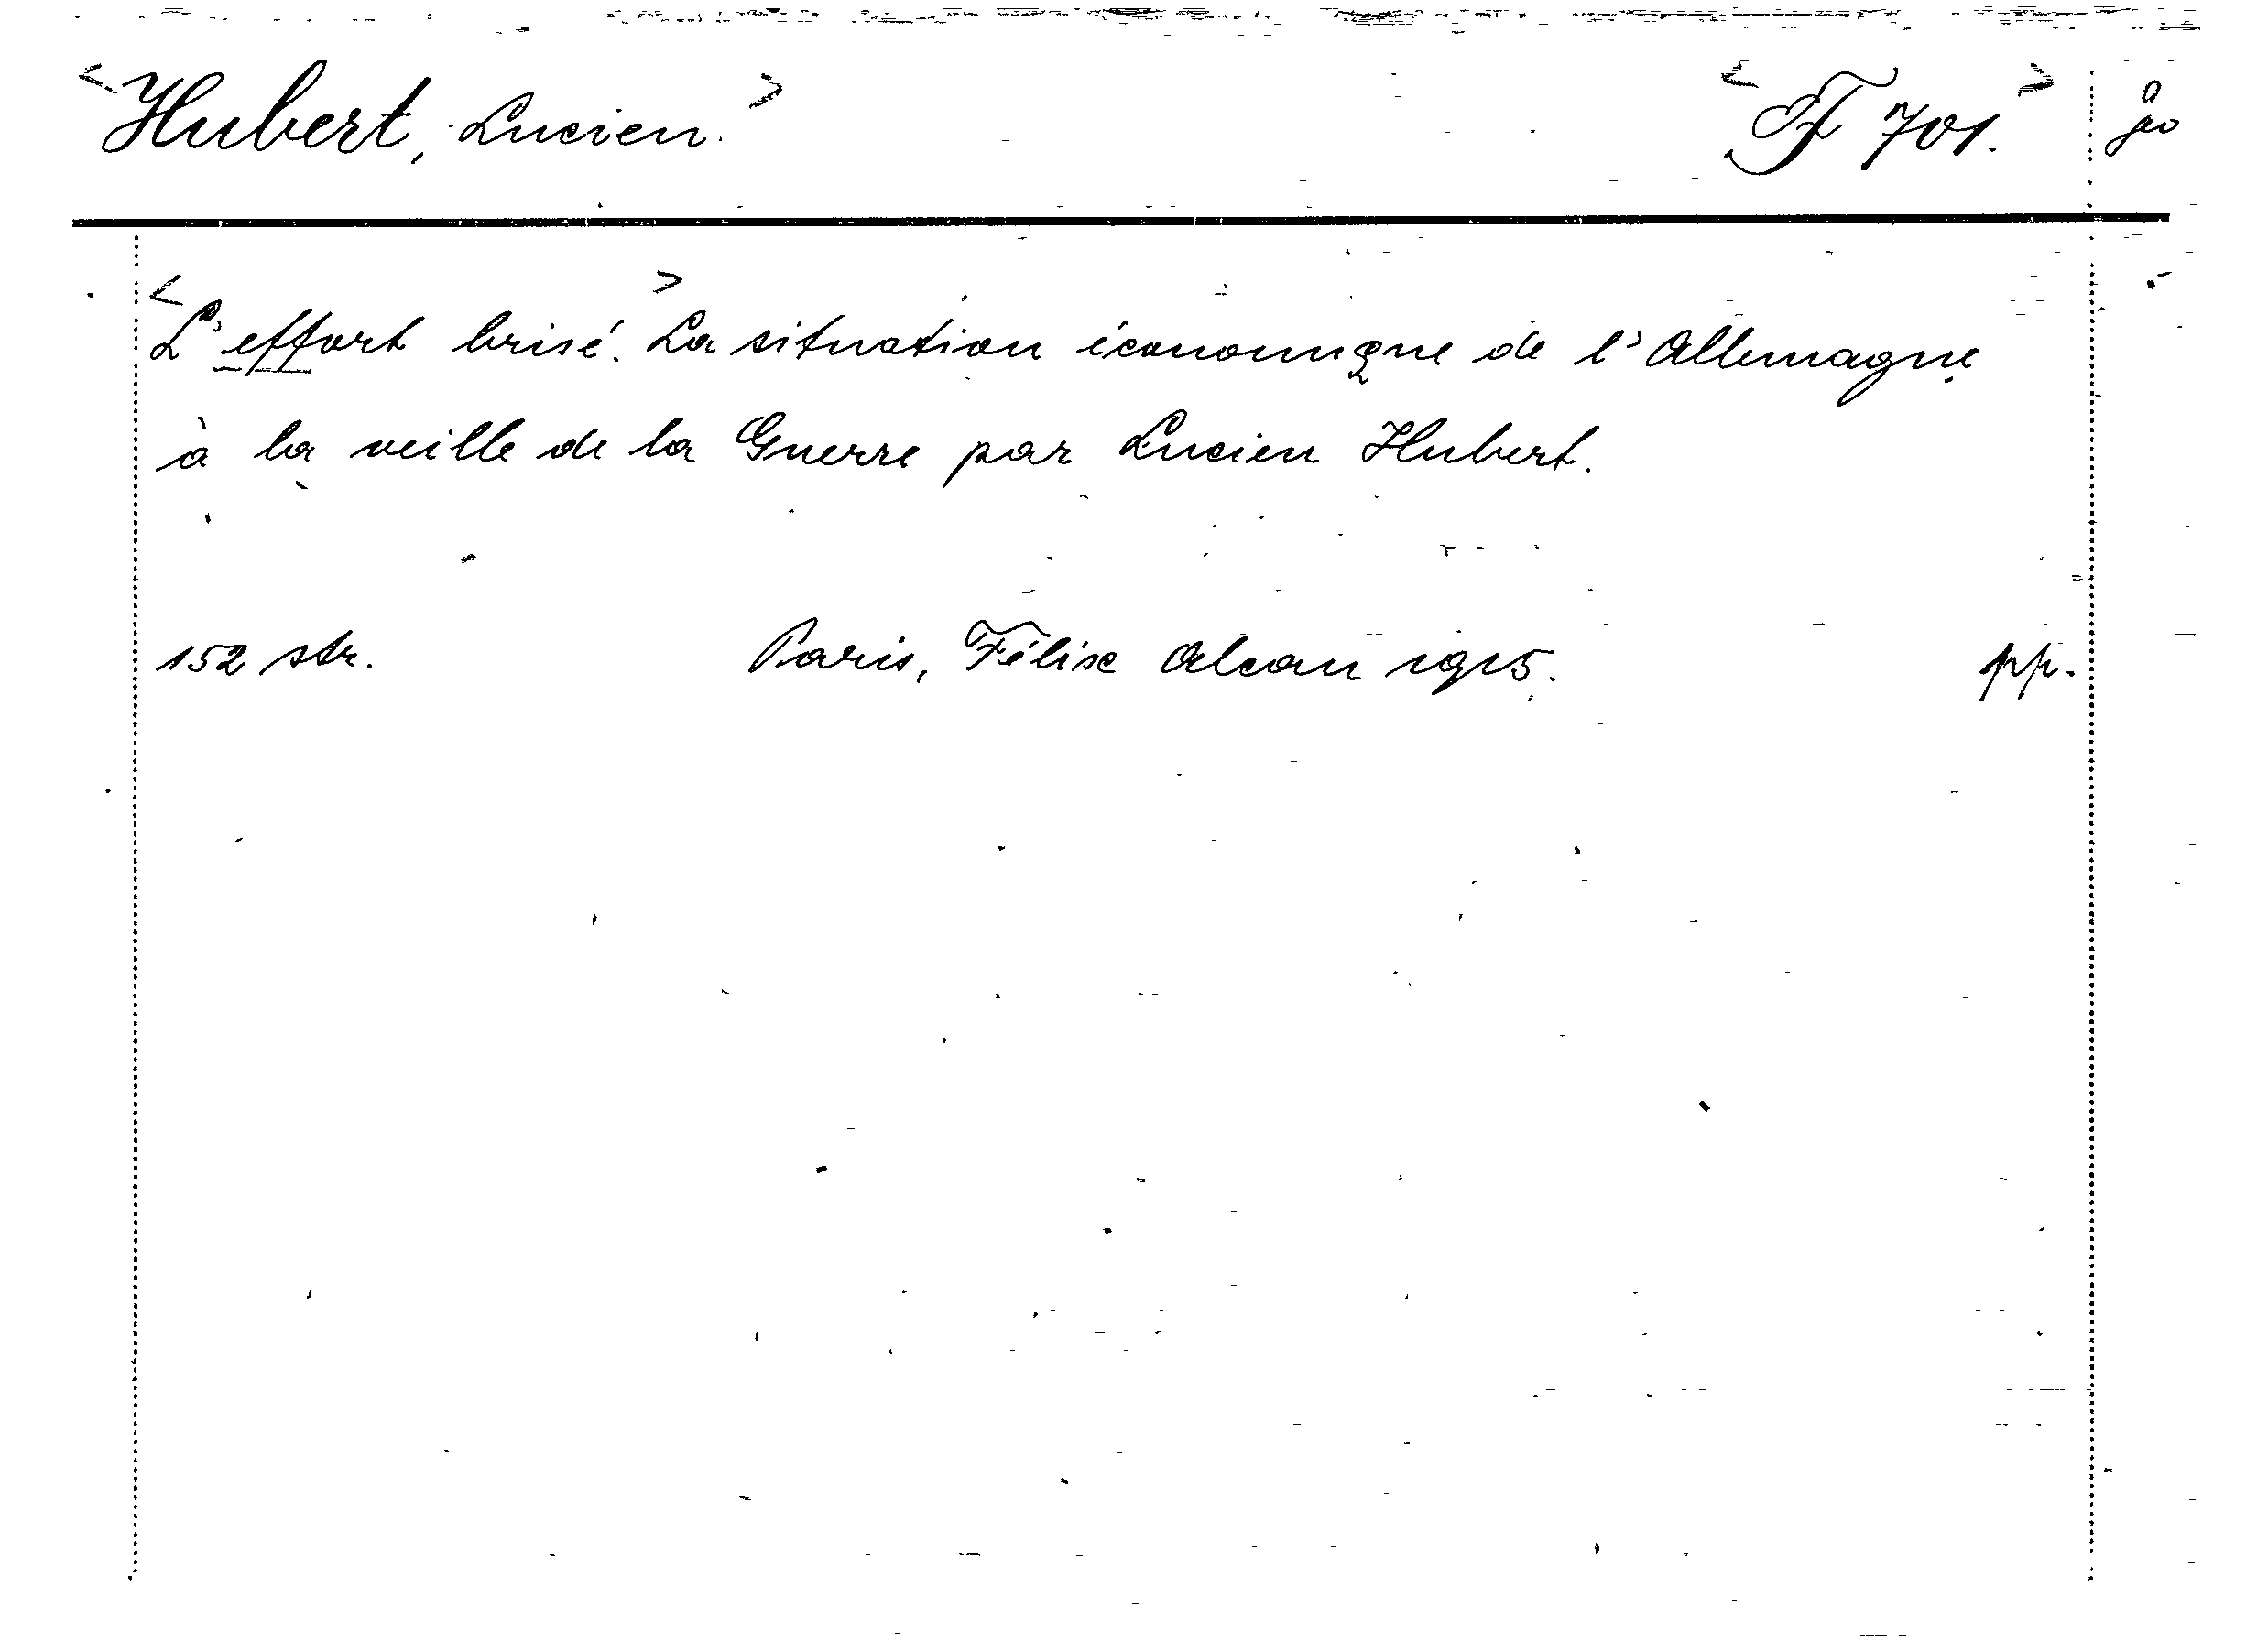 <Hubert, Lucien.> <F 701.>
<L'effort brisé.> La situation économique de l'Allemagne
à la veille de la Guerre par Lucien Hubert.
152 str. Paris, Félix Alcan 1915. pp.